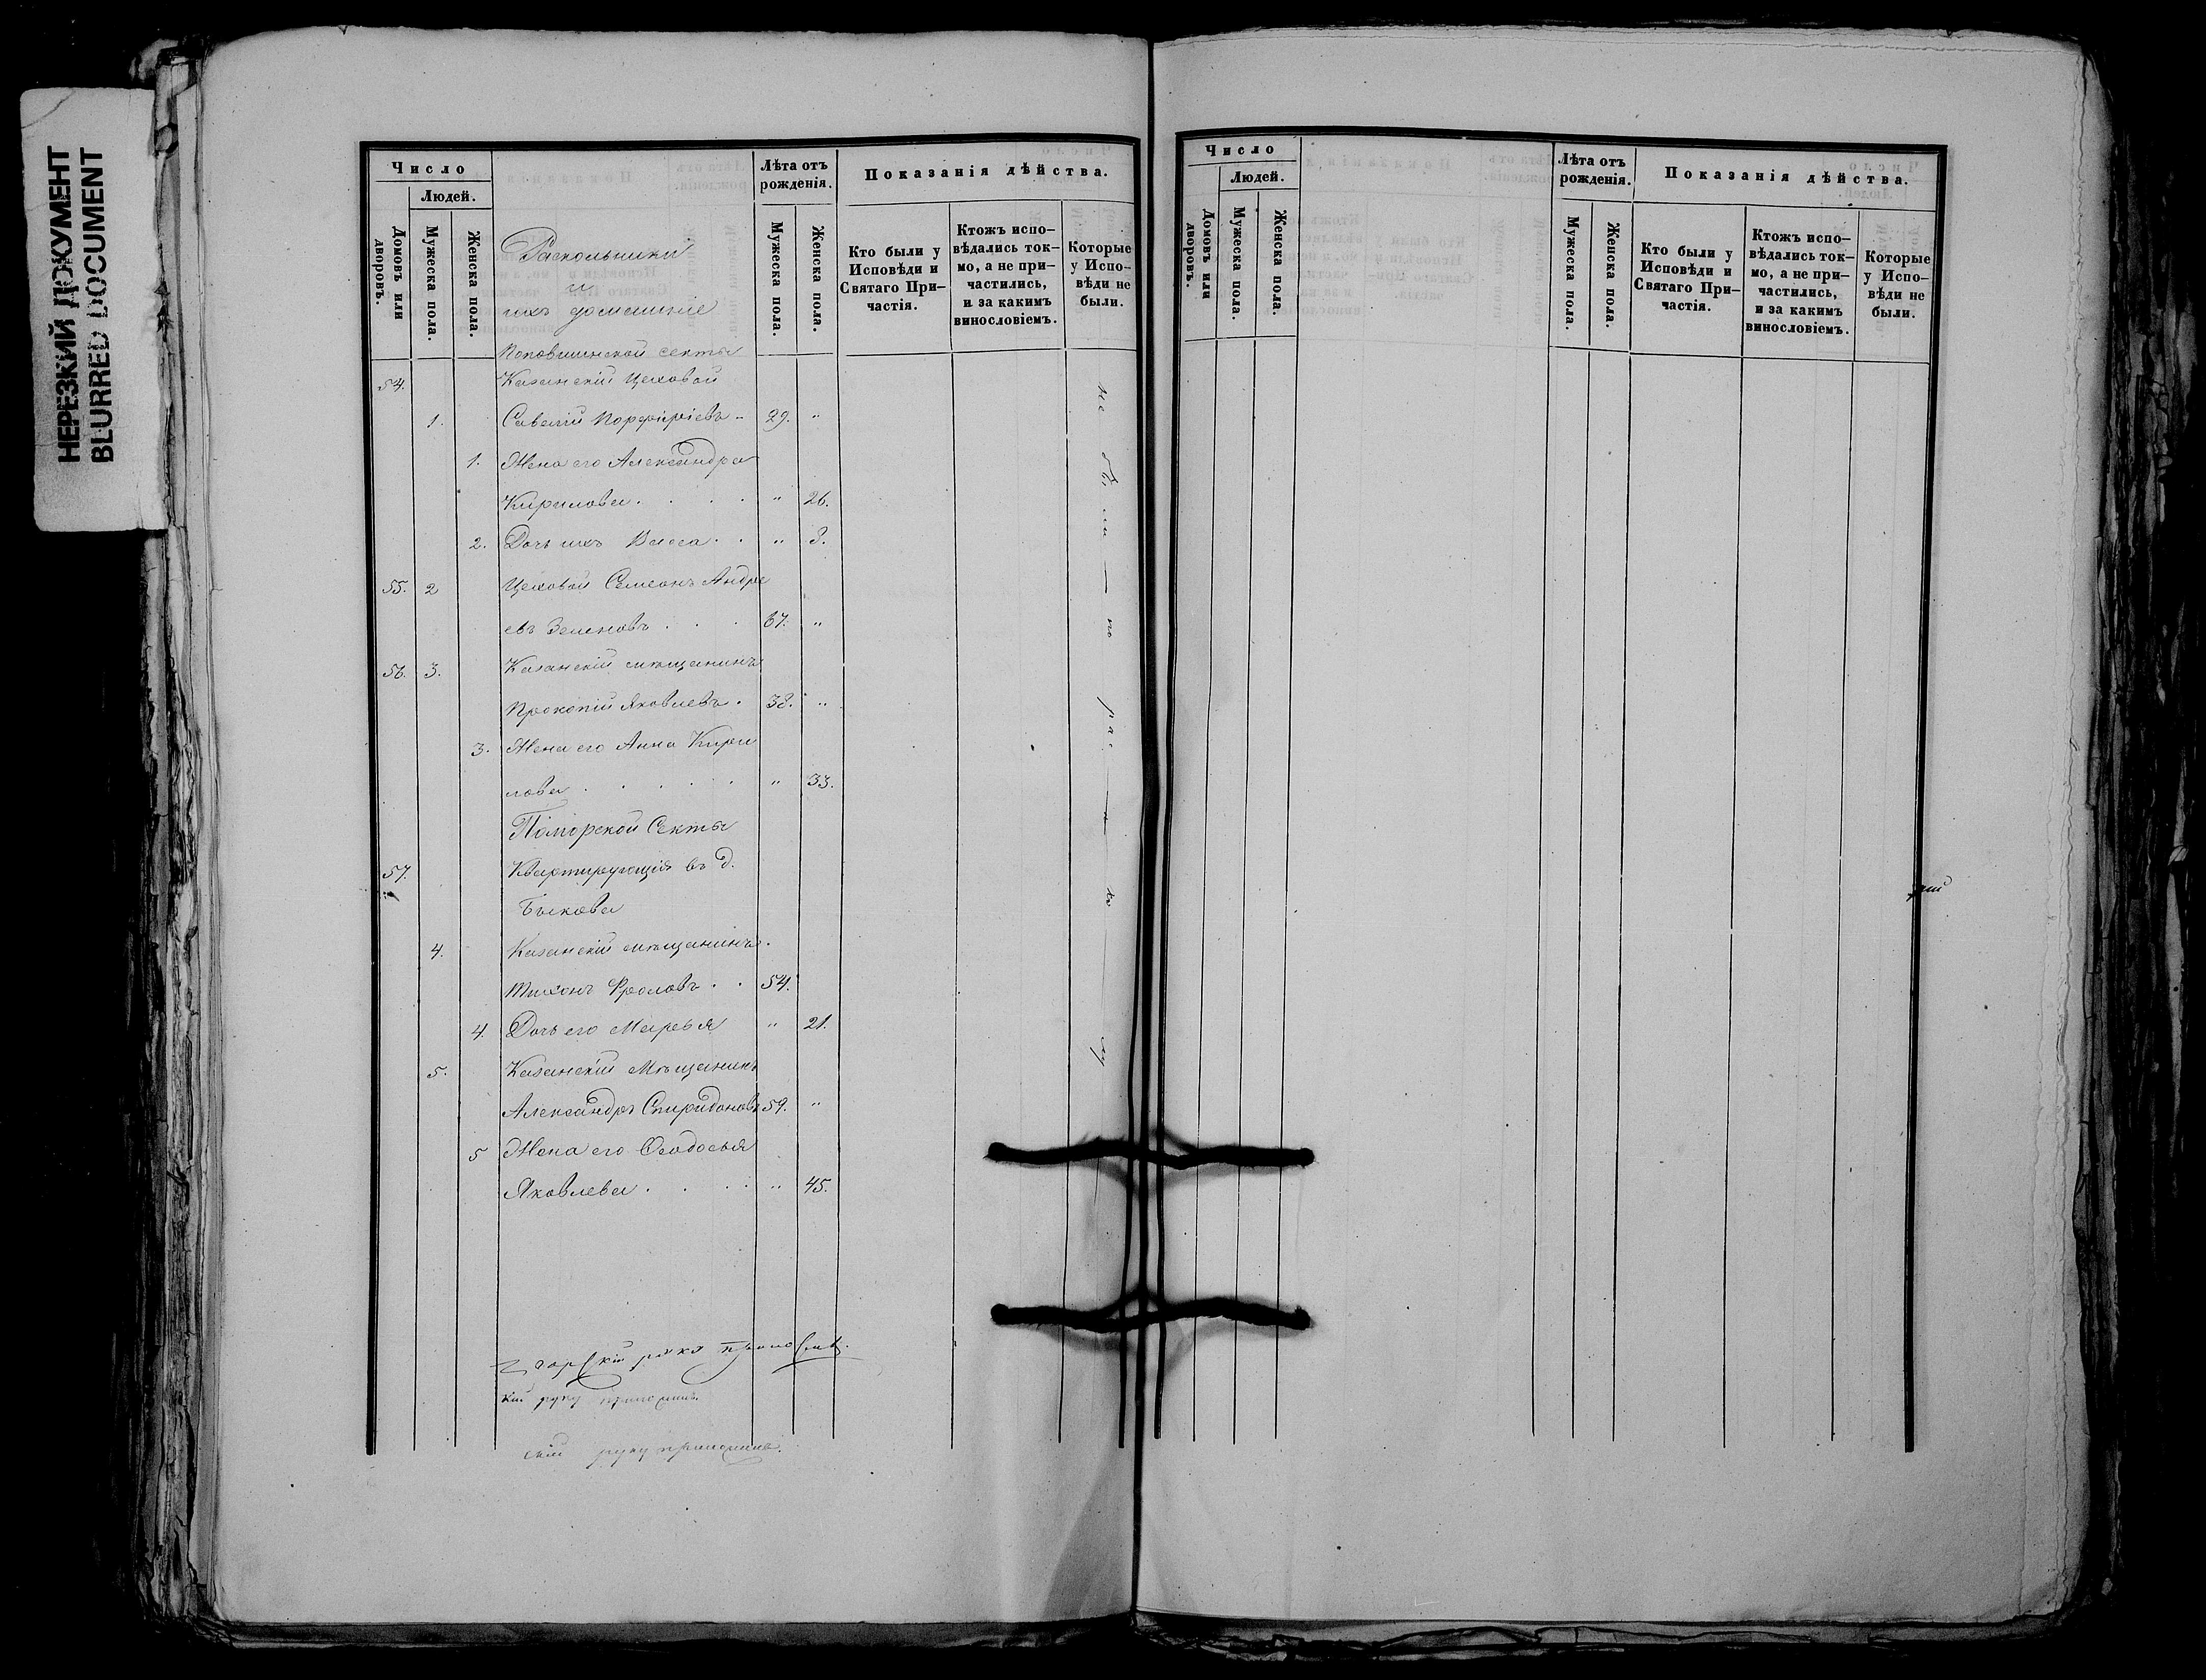 НЕРЕЗКИЙ ДОКУМЕНТ
BLURRED DOCUMENT
Число
Людей.
Домовъ или дворовъ.
Мужеска пола.
Женска пола.
Лѣта отъ рожденія.
Мужеска пола.
Женска пола.
Показанія дѣйства.
Кто были у Исповѣди и Святаго При-
частія.
Ктожъ испо-
вѣдались ток-
мо, а не при-
частились,
и за какимъ
винословіемъ.
Которые
у Испо-
вѣди не
были.
Раскольники
и
ихъ домашніе
Поповшинской секты
54. Казанскій Цеховой
1. Савелій Порфиріевъ 29. "
1. Жена его Александра
Кирилова . . . . " 26.
2. Дочь ихъ Васса . . " 8.
55. 2 Цеховой Семеонъ Андре
евъ Зеленовъ . . . 67. "
56. 3. Казанскій мѣщанинъ
Прокопій Яковлевъ . 38. "
3. Жена его Анна Кири
лова . . . . . " 33.
Поморской Секты
57. Квартирующія въ д.
Быкова
4. Казанскій мѣщанинъ.
Тихонъ Фроловъ . . 54.
4. Дочь его Марья " 21.
5. Казанскій Мѣщанинъ
Александръ Спиридоновъ 59. "
5 Жена его Ѳеодосья
Яковлева . . . . " 45.
не были по рас
кій руку приложилъ.
скій руку приложилъ.
Число
Людей.
Домовъ или дворовъ.
Мужеска пола.
Женска пола.
Лѣта отъ рожденія.
Мужеска пола.
Женска пола.
Показанія дѣйства.
Кто были у
Исповѣди и
Святаго При-
частія.
Ктожъ испо-
вѣдались ток-
мо, а не при-
частились,
и за какимъ
винословіемъ.
Которые
у Испо-
вѣди не
были.